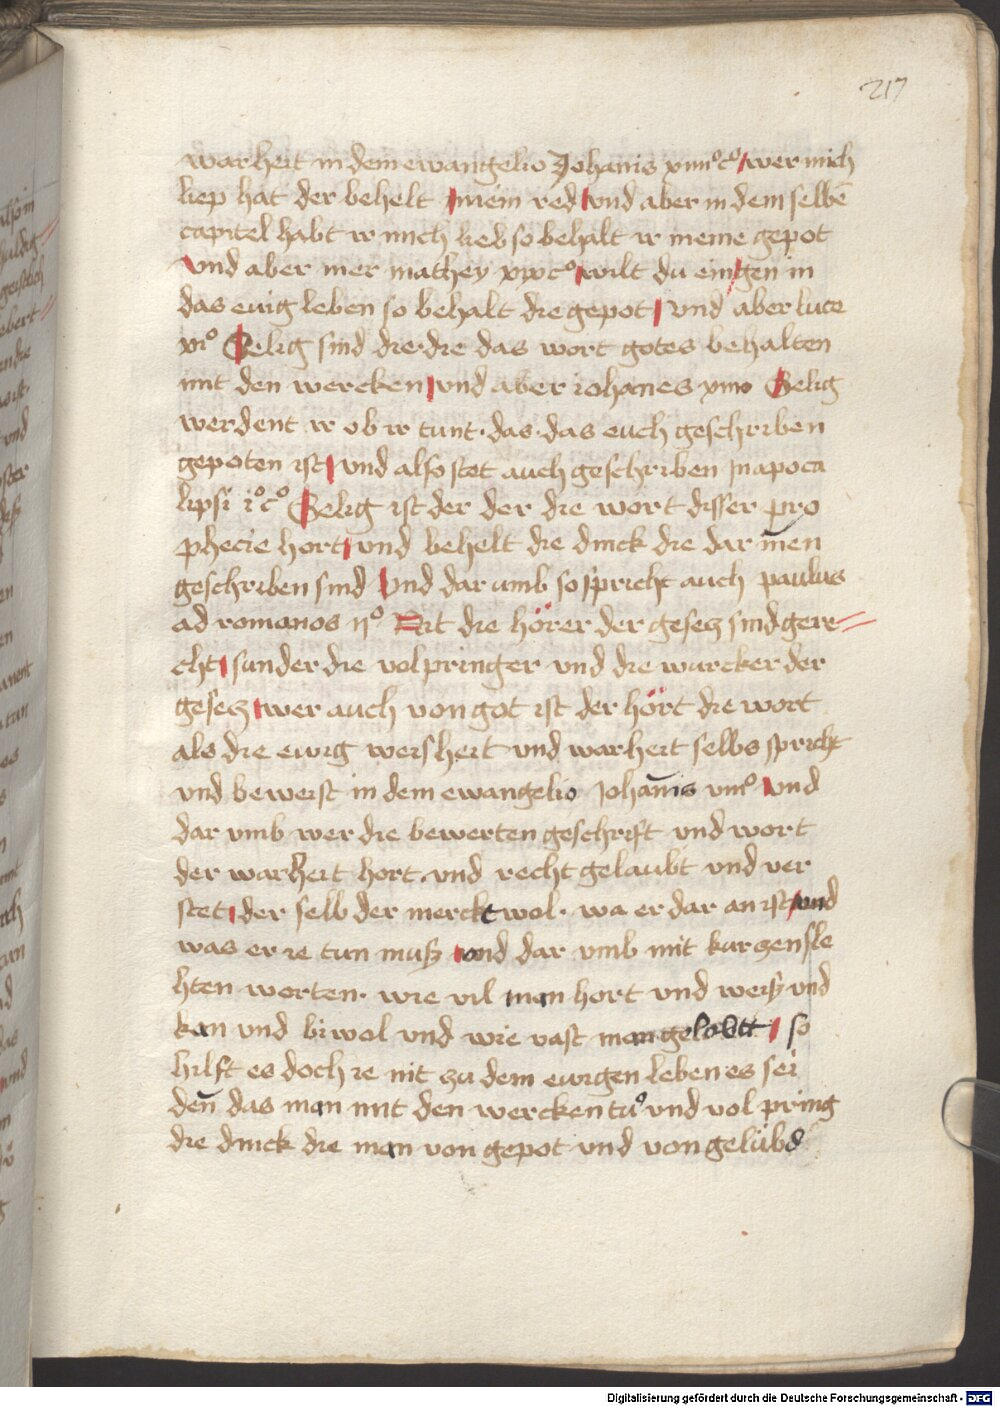 217
warheit in dem ewangelio Johanis xiiii° c° wer mich
liep hat der behelt mein red und aber in dem selbē
capitel habt ir mich lieb so behalt ir meine gepot
Vnd aber mer mathey xix c° wilt du ein gen in
das ewig leben so behalt die gepot vnd aber luce
xi° Selig sind die die das wort gotes behalten
mit den wercken vnd aber iohanes xiii° Selig
werdent ir ob ir tunt das das euch geschriben
gepoten ist vnd also stet auch geschriben in apoca
lipsi i° c° Selig ist der der die wort disser pro
phecie hort vnd behelt die dinck die dar inen
geschriben sind Vnd dar umb so spricht auch paulus
ad romanos ii° Nit die hörer der gesecz sind gere
cht sunder die volpringer vnd die wurcker der
gesecz wer auch von got ist der hört die wort
als die ewig weisheit vnd warheit selbs spricht
vnd beweist in dem ewangelio Johānis viii° vnd
dar vmb wer die bewerten geschrift vnd wort
der warheit hort vnd recht gelaubt vnd ver
stet der selb der merckt wol wa er dar an ist vnd
was er ie tun muß vnd dar vmb mit kurzen sle
hten worten wie vil man hort vnd weiß vnd
kan vnd biwol vnd wie vast man gelobtt so
hilft es doch ie nit zu dem ewigen leben es sei
deñ das man mit den wercken tů vnd vol pring
die dinck die man von gepot vnd von gelübd
Digitalisierung gefördert durch die Deutsche Forschungsgemeinschaft - DFG